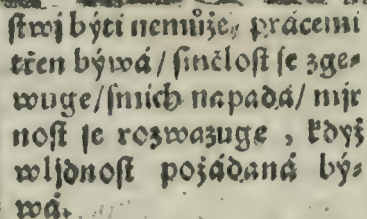 ſtwj býti nemůže, prácemi
třen býwá / ſměloſt ſe zge⸗
wuge / ſmích napadá / mjr
noſt ſe rozwazuge , když
wljdnoſt požádaná bý⸗
wá.